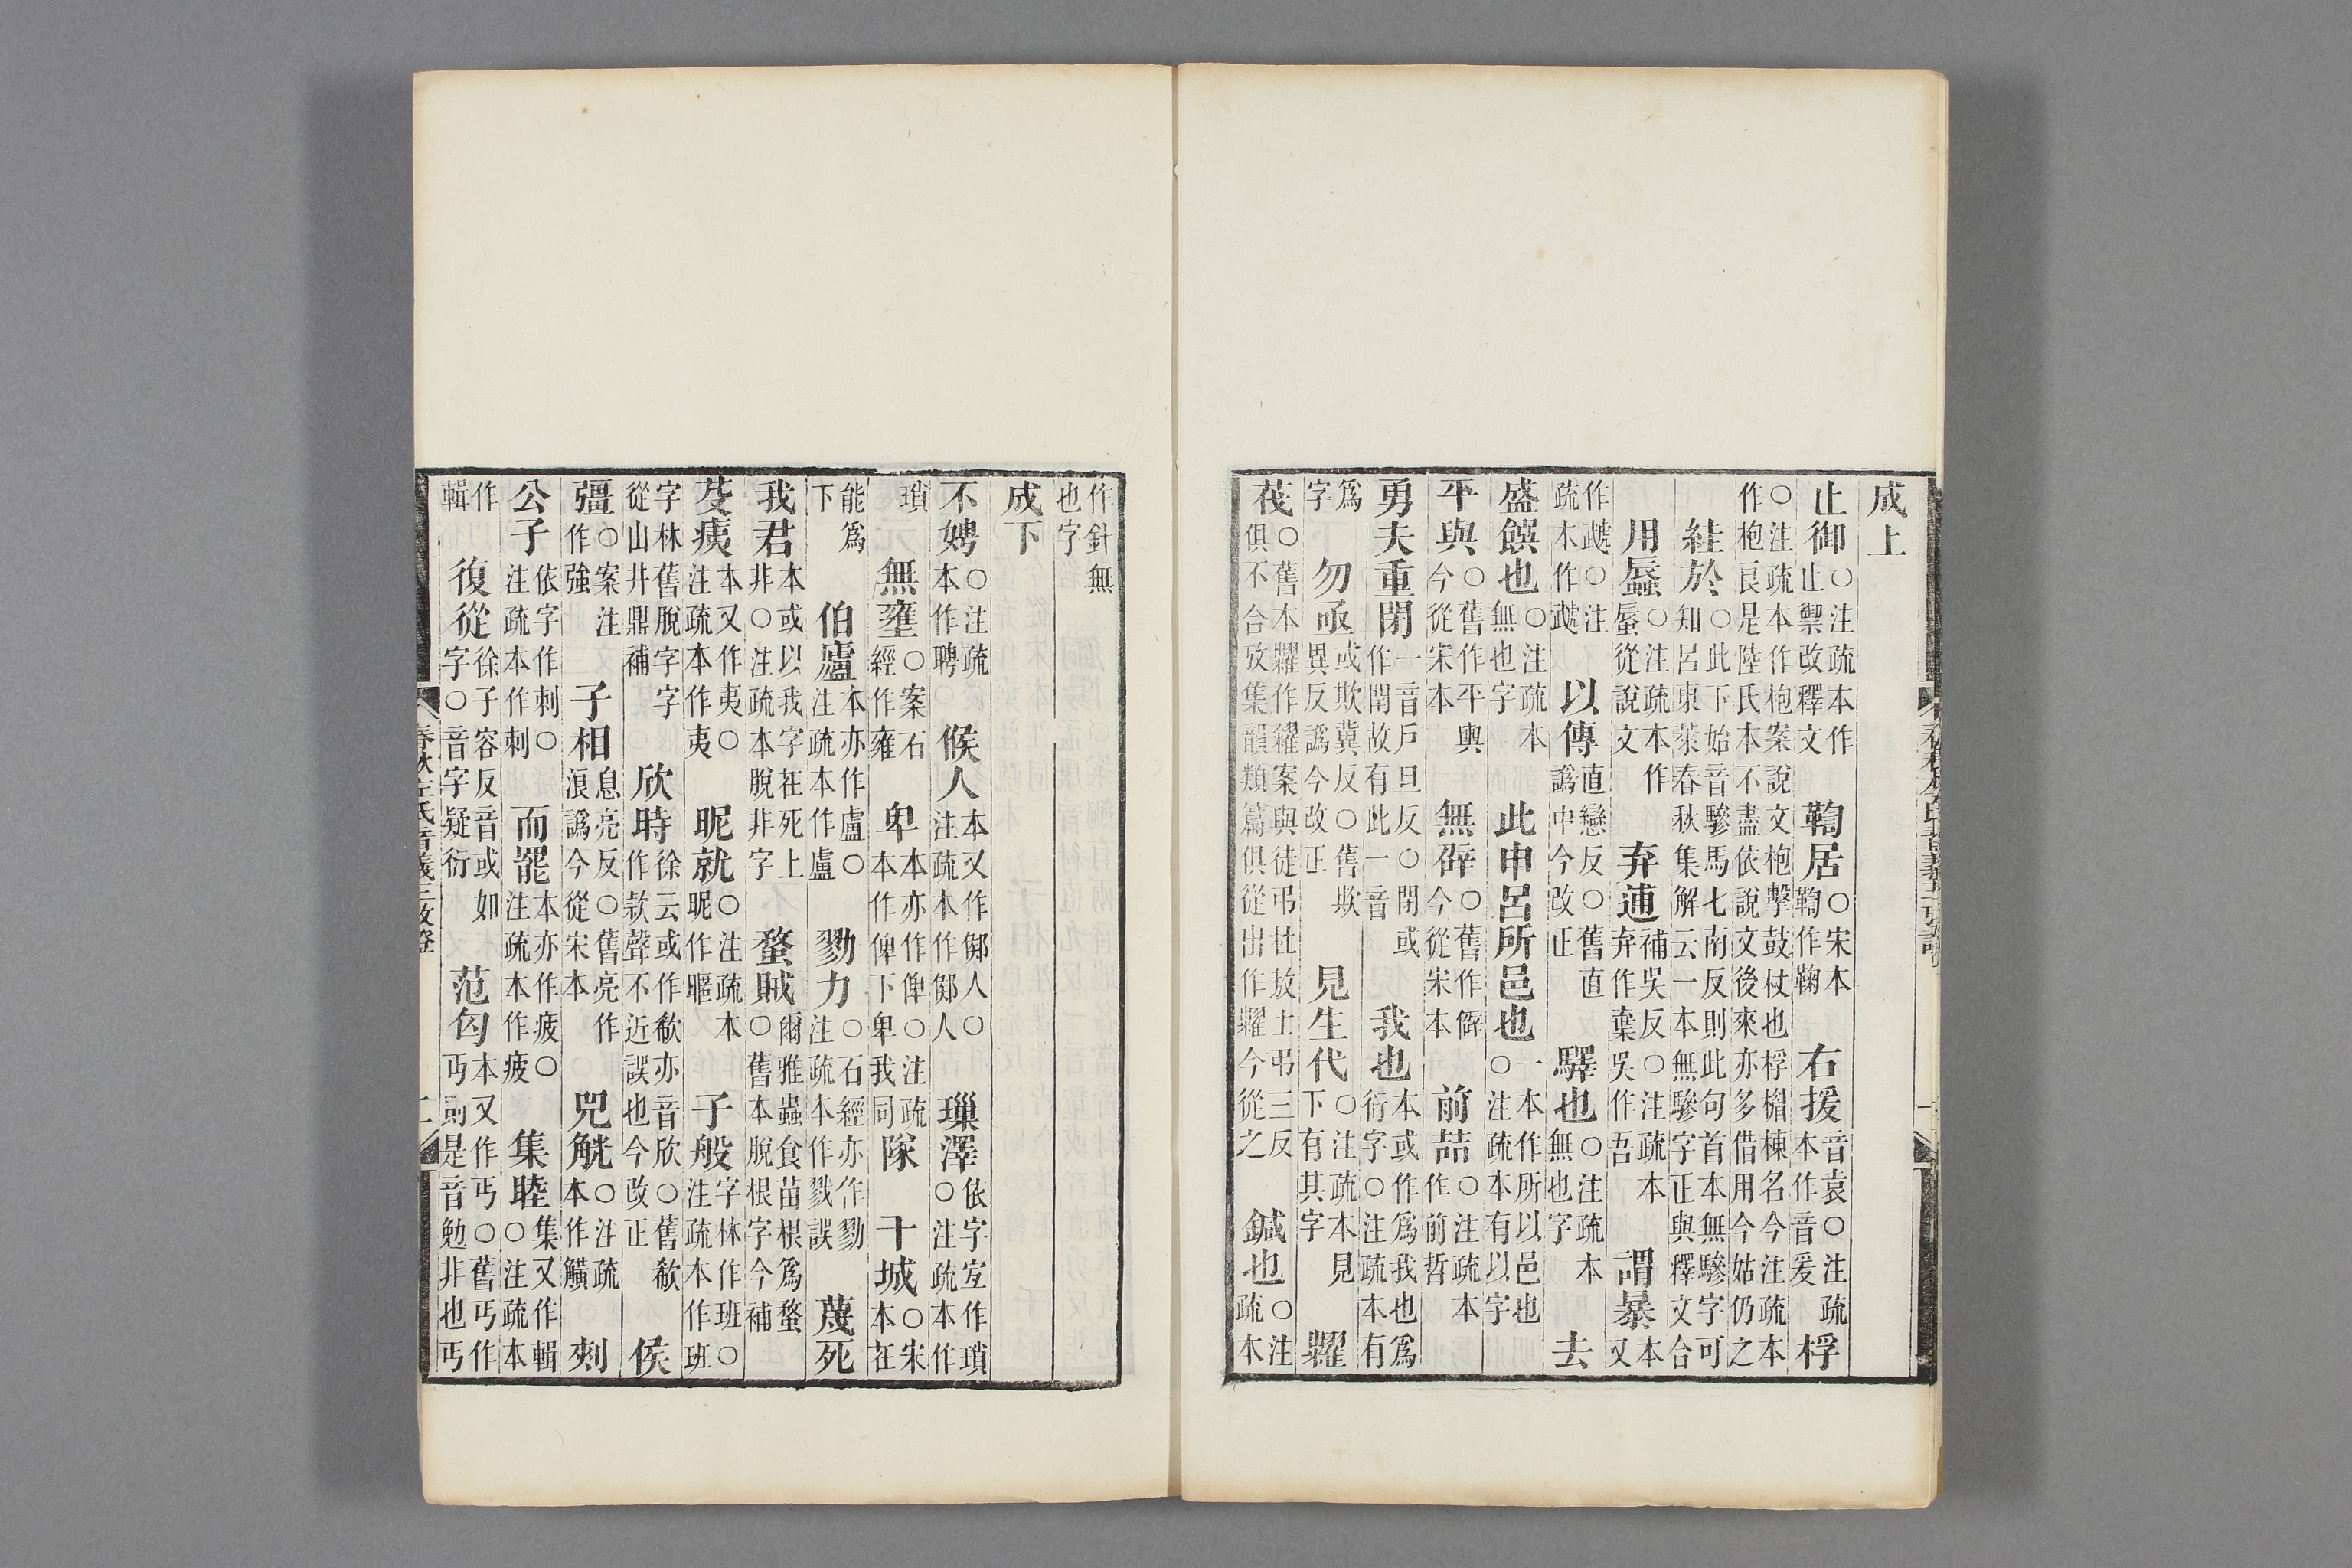 成上
止御○注疏本作止禦改釋文 鞫居○宋本鞫作鞠 右援音袁○注疏本作音爰 桴
○注疏本作枹案說文枹擊鼓杖也桴楣棟名今注疏本作枹良是陸氏本不盡依說文後來亦多借用今姑仍之
絓於○此下始音驂馬七南反則此句首本無驂字可知呂東萊春秋集解云一本無驂字正與釋文合
用蜃○注疏本作蜃從說文 弃逋補吳反○注疏本弃作棄吳作吾 謂暴本又
作虣○注疏本作虣 以傳直戀反○舊直譌中今改正 驛也○注疏本無也字 去
盛饌也○注疏本無也字 此申呂所邑也一本作所以邑也○注疏本有以字
平與○舊作平輿今從宋本 無辟○舊作僻今從宋本 前喆○注疏本作前哲
勇夫重閉一音戶旦反○閉或作閈故有此一音 我也本或作爲我也爲衍字○注疏本有
爲字 勿亟或欺冀反○舊欺異反譌今改正 見生代○注疏本見下有其字 糶
茷○舊本糶作糴案與徒弔杜敖土弔三反俱不合攷集韻類篇俱從出作糶今從之 鍼也○注疏本
作針無也字
成下
不娉○注疏本作聘 候人本又作鄇人○注疏本作鄇人 璅澤依字宜作瑣○注疏本作
瑣 無壅○案石經作雍 卑本亦作俾○注疏本作俾下卑我同 隊 干城○宋本在
能爲下 伯廬本亦作盧○注疏本作盧 勠力○石經亦作勠注疏本作戮誤 蔑死
我君本或以我字在死上非○注疏本脫非字 蝥賊爾雅蟲食苗根爲蝥○舊本脫根字今補
芟痍本又作夷○注疏本作夷 昵就○注疏本昵作暱 子般字林作班○注疏本作班
字林舊脫字字從山井鼎補 欣時徐云或作欷亦音欣○舊欷作款聲不近誤也今改正 侯
彊○案注作強 子相息亮反○舊亮作浪譌今從宋本 兕觥○注疏本作觵 刺
公子依字作刺○注疏本作刺 而罷本亦作疲○注疏本作疲 集睦集又作輯○注疏本
作輯 復從徐子容反音或如字○音字疑衍 范匄本又作丐○舊丐作丏則是音勉非也丐
春秋左氏音義三攷證 二